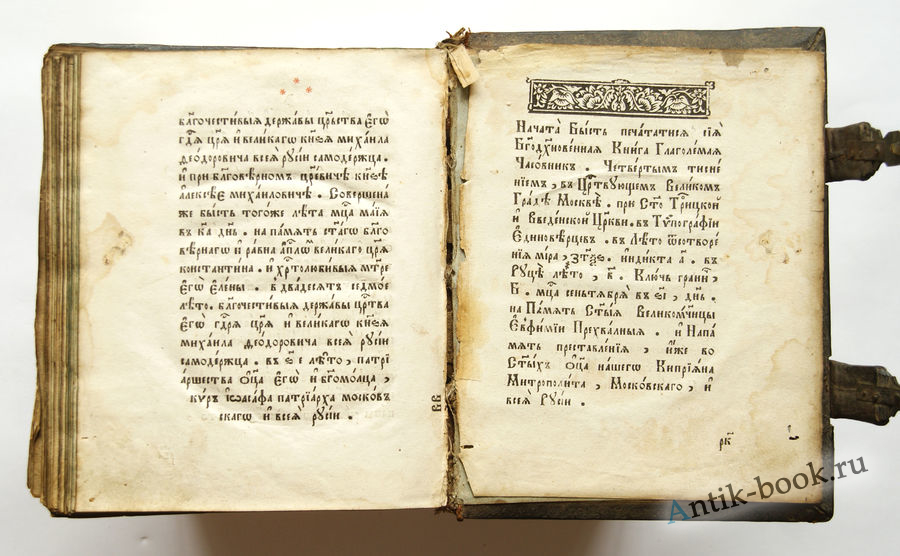 бл҃гочестивыя державы црⷭ҇тва єгѡ̀
гдⷭ҇ря црѧ̀ и великагѡ кн҃ѕя михаила
деодоровича всеѧ̀ русіи самодержца.
и при бл҃говѣрномъ цр҃евиче кн҃ѕѣ
алексѣе михаиловиче . Совершена
же бысть тогоже лѣта мцⷭ҇а маїя
въ к҃а днь . на память ст҃агѡ бл҃го
вѣрнагѡ и равна ап҃лѡ великаго цр҃ѧ
константина . и хрⷭ҇толюбивыѧ мт҃ре
єгѡ̀ єлены . в двадесѧтъ седмое
лѣто . бл҃гочестивыѧ державы црⷭ҇тва
єгѡ̀ гдⷭ҇ря црѧ̀ и великагѡ кн҃ѕя
михаила деодоровича всеѧ̀ русіи
самодержца . въ е лѣто , патрі
аршества ѻц҃а єгѡ̀ и бг҃омолца ,
кѵръ іѡасафа патрїарха москов
скагѡ и всеѧ̀ русіи .
Начата Бысть печататисѧ сїѧ̀
Бг҃одх҃новенная Книга Глаголемая
Часовникъ . Четвертымъ тисне
нїемъ , въ Црⷭ҇твующемъ Великомъ
Градѣ Москвѣ . при Ст҃о Трⷪ҇ицкой
и Введенской Цр҃кви . въ Тѵпографїи
Єдиновѣрцевъ . въ Лѣто ѿ сотворе
нїя міра , индикта а҃ . въ
Руцѣ лѣто , в҃ . Ключь гранит ,
Б . мцⷭ҇а сентѧбрѧ въ ѕ҃і , днь .
на Память Ст҃ыѧ Великомч҃ницы
Єѵфиміи Прехвалныѧ . и Напа
мѧть преставленія , иже во
Ст҃ыхъ ѻц҃а нашегѡ Кипрїѧна
Митрополита , Московскаго , и
всеѧ̀ Русіи .
рк҃
Antik-book.ru